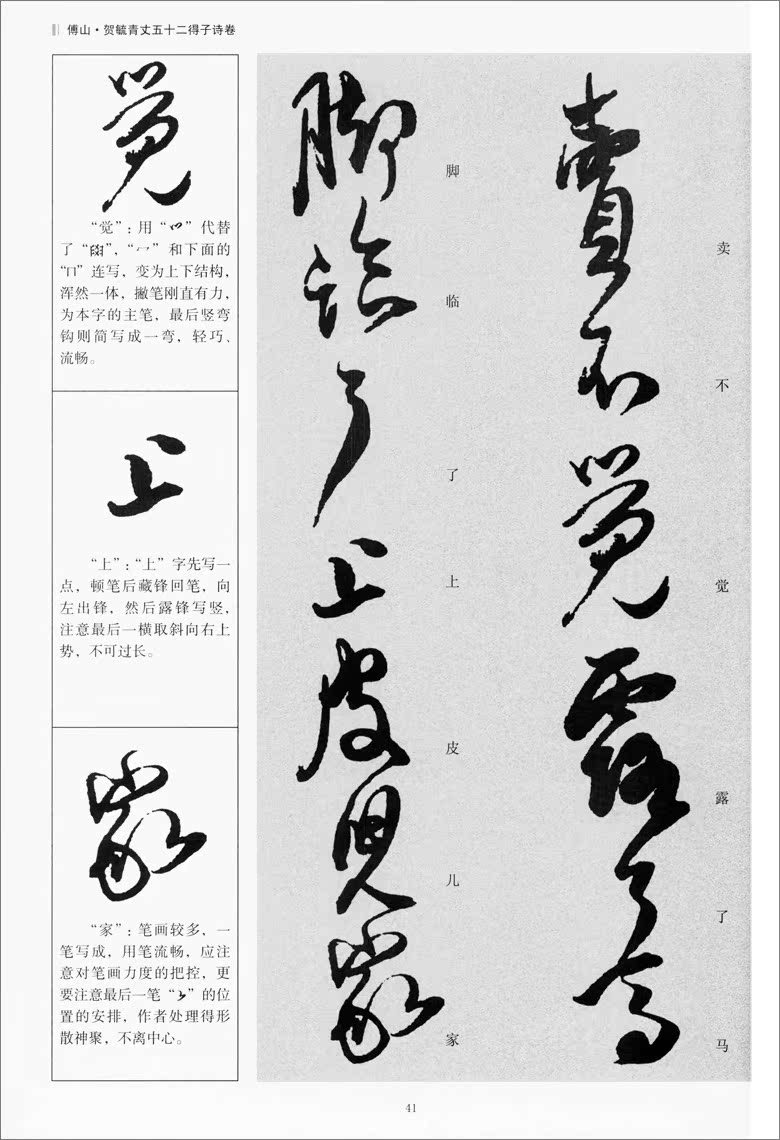 傅山·贺毓青丈五十二得子诗卷
卖不觉露了马
脚临了上皮儿家
“觉”：用“⺍”代替
了“𦥯”，“冖”和下面的
“冂”连写，变为上下结构，
浑然一体，撇笔刚直有力，
为本字的主笔，最后竖弯
钩则简写成一弯，轻巧、
流畅。
“上”：“上”字先写一
点，顿笔后藏锋回笔，向
左出锋，然后露锋写竖，
注意最后一横取斜向右上
势，不可过长。
“家”：笔画较多，一
笔写成，用笔流畅，应注
意对笔画力度的把控，更
要注意最后一笔“”的位
置的安排，作者处理得形
散神聚，不离中心。
41